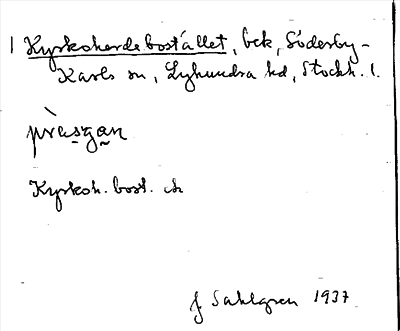 1 Kyrkoherdebostället, bek, Söderby-
Karls sn, Lyhundra hd, Stockh. l.
pràsgan
Kyrkoh. bost. ib
J Sahlgren 1937